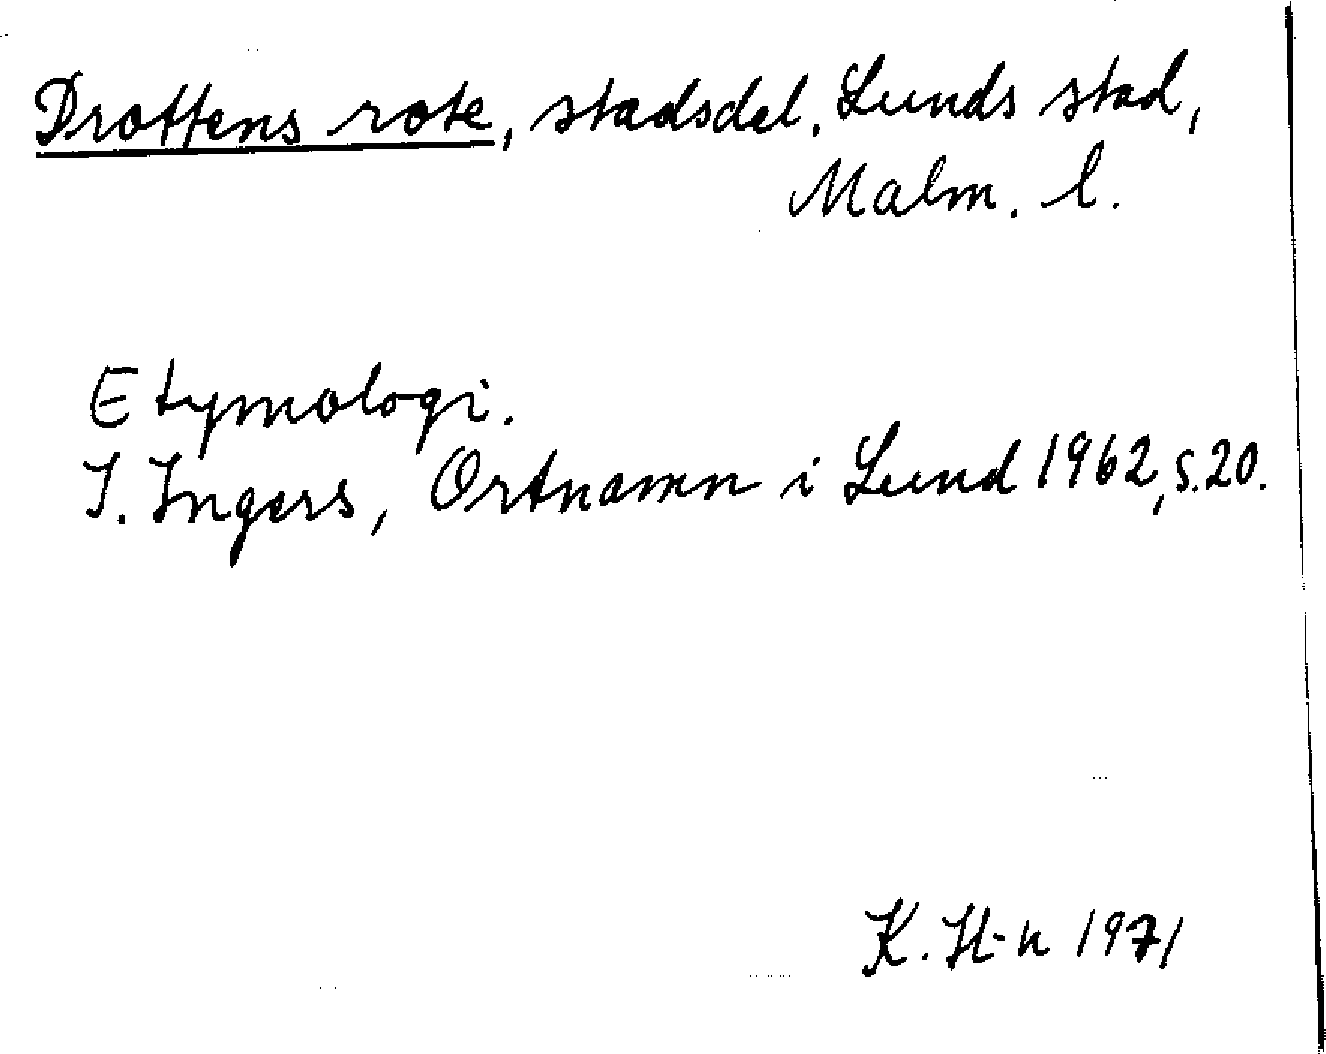 Drottens rote, stadsdel, Lunds stad,
Malm. l.
Etymologi.
I. Ingers, Ortnamn i Lund 1962, s. 20.
K. H-n 1971